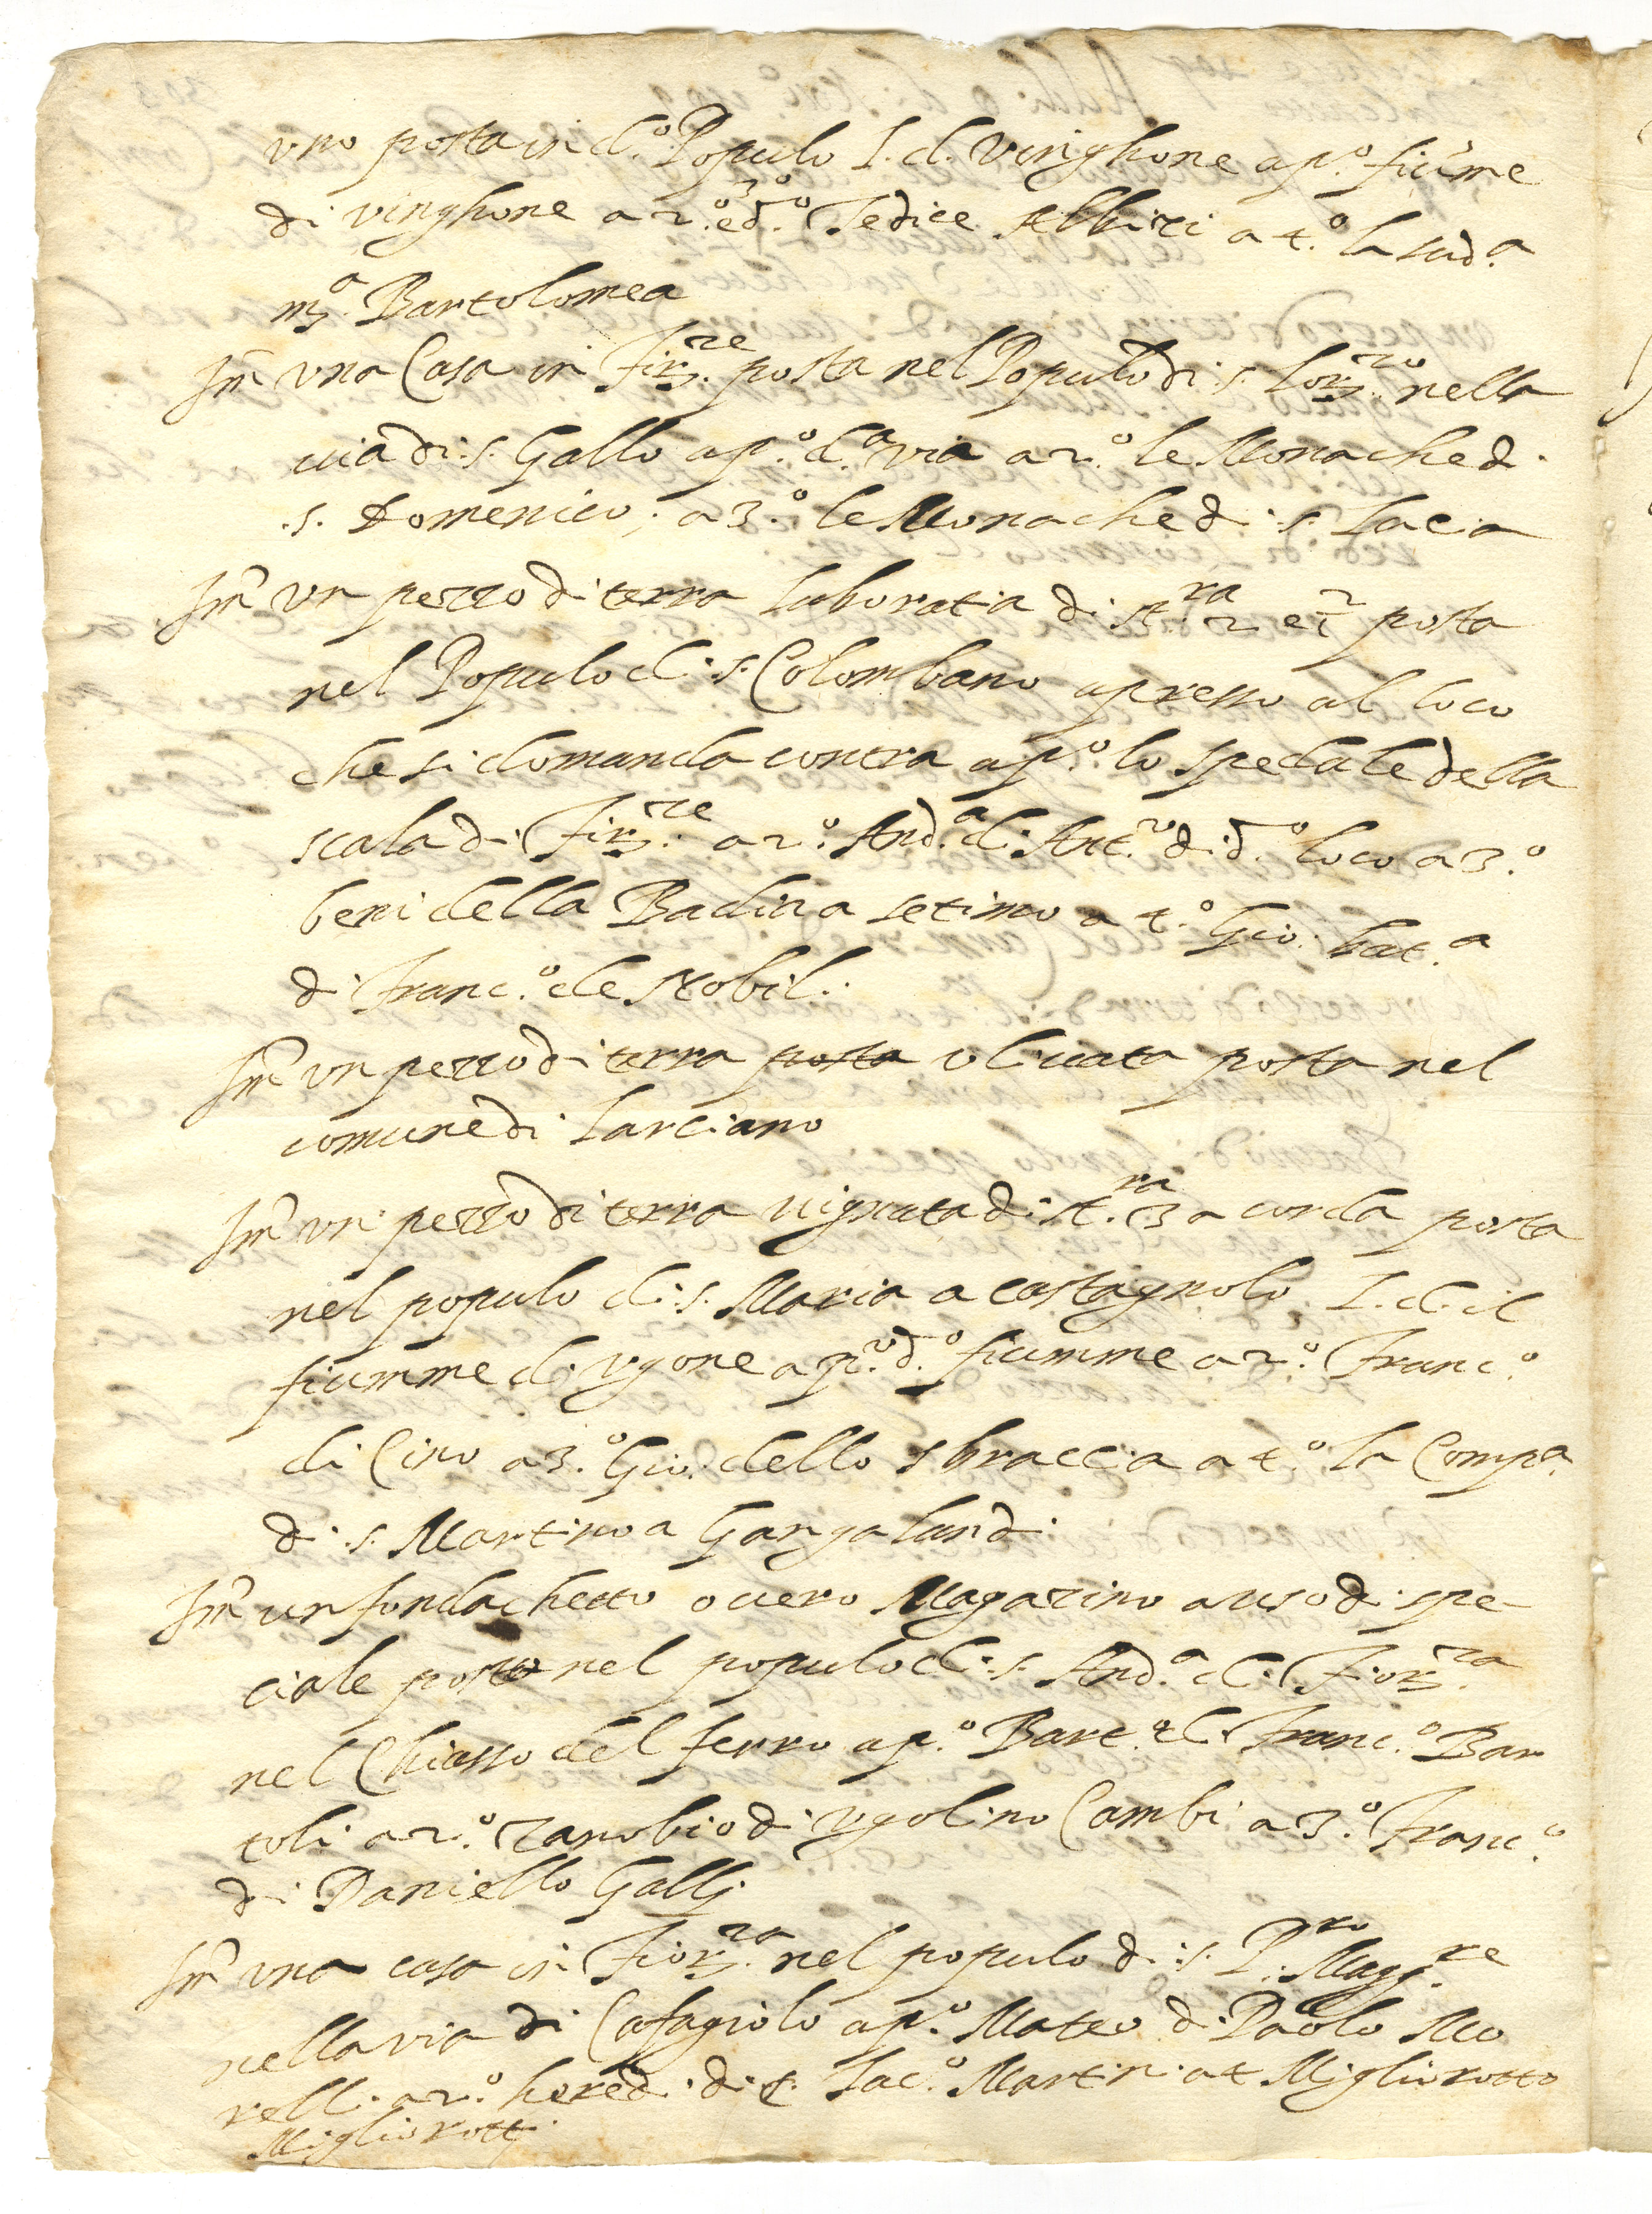 vno posta in d.º Populo l. d. Vinghone a p.º fiume
di vinghone a 2.º e 3º d.º Tedice Albizi a 4.º la sud.ª
mª. Bartolomea
Im vna Casa in Firze. posta nel Populo di .s. Lorzo. nella
via di .s. Gallo a p.º d.ª via a 2.º le Monache d.
.s. Domenico, a 3.º le Monache di .s. Lucia
Im vn pezzo di terra laboratia di st.ra 2 e posta
nel Populo di .s. Colombano apresso al loco
che si domanda contra a p.º lo spedale della
scala di Firze. a 2.º And.ª di Ant.º di d.º loco a 3.º
beni della Badia a setimo a 4.º Gio: bat.ª
di Franc.º de Nobili.
Im vn pezzo di terra posta vliuata posta nel
comune di Larciano
Im vn pezzo di terra vignata di st.ra 3 a corda posta
nel populo di .s. Maria a castagnolo l. d. il
fiumme di vgone a p.º d.º fiumme a 2.º Franc.º
di Cino a 3.º Gio: dello sbraccia a 4.º la Compª.
di .s. Martino a Gangalandi
Im un fondachetto ouero Magazino a uso di spe-
ciale posto nel populo di .s. And.ª di Fiorza.
nel Chiasso del ferro a p.º Bart.º di Franc.º Bar
toli a 2.º Zanobio di Vgolino Cambi a 3.º Franc.º
di Daniello Gallj
Im vna casa in Fiorza. nel populo di .s. P.ro Magg.re
nella via di Cafagiolo a p.º Mateo di Paolo Mo
relli a 2.º heredi di Iac.º Martini a 4 Migliorotto
Migliorottj